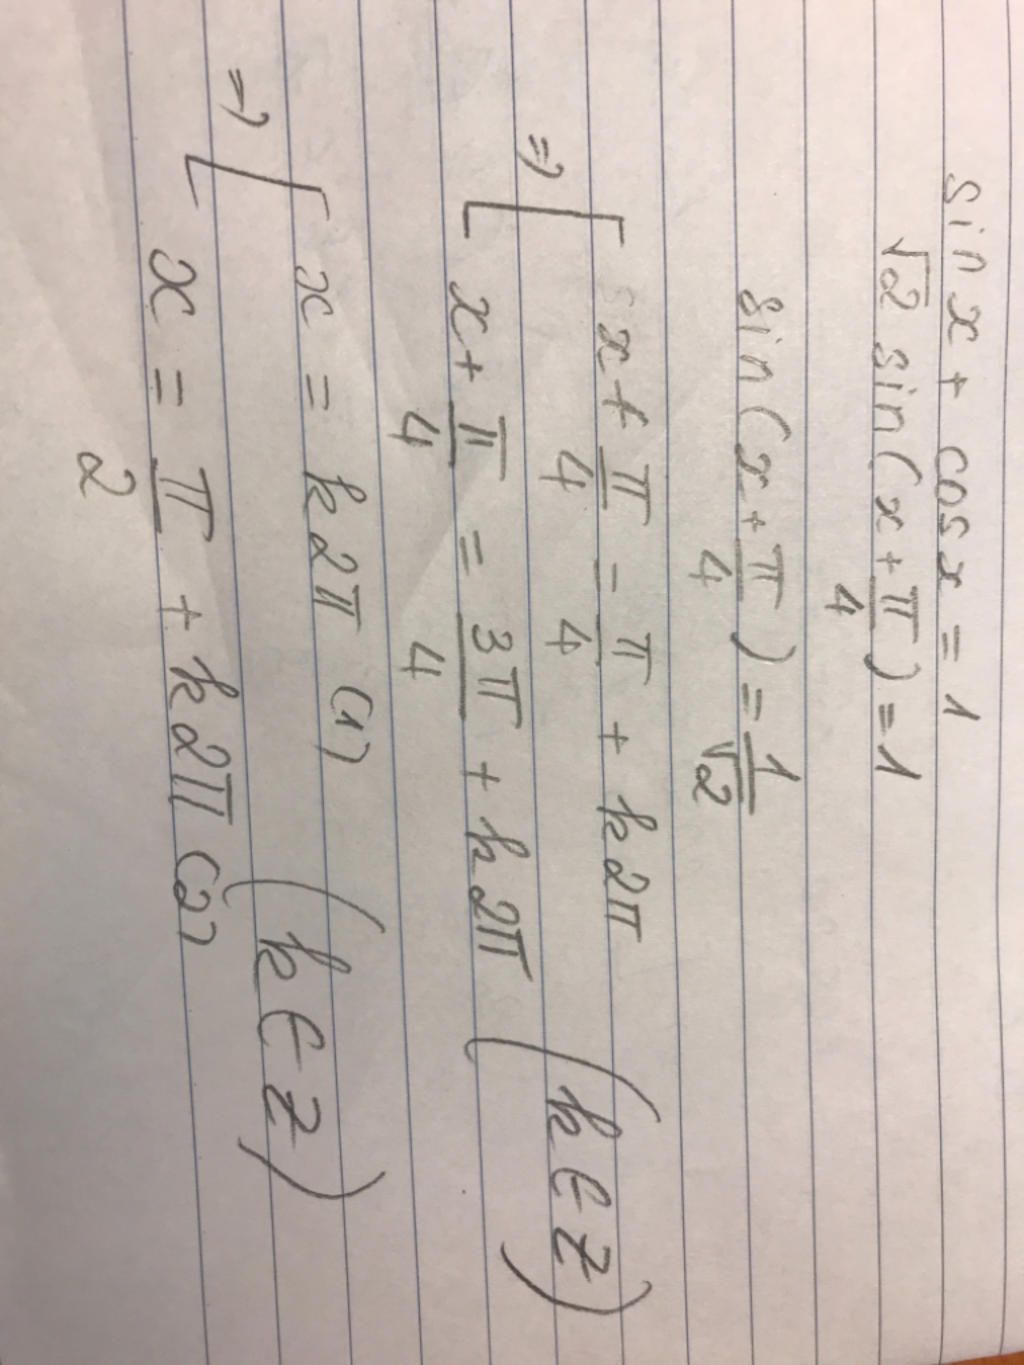 sin x + cos x = 1
√2 sin(x + π/4) = 1
sin(x + π/4) = 1/√2
=> [ x + π/4 = π/4 + k2π
x + π/4 = 3π/4 + k2π (k ∈ Z)
=> [ x = k2π (1)
x = π/2 + k2π (2) (k ∈ Z)